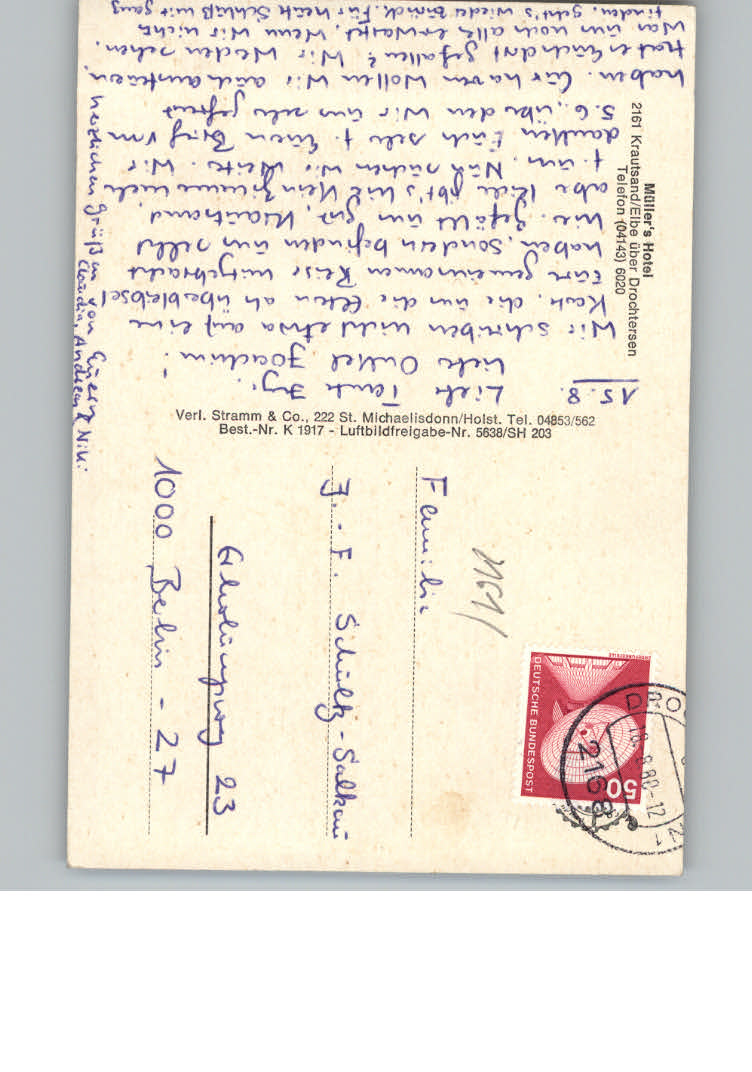 Müller's Hotel
2161 Krautsand/Elbe über Drochtersen
Telefon (04143) 6020
15.8.
Liebe Tante Ivy,
lieber Onkel Joachim!
Wir schreiben nicht etwa auf eine
Karte, die uns die Eltern als Überbleibsel
Eurer gemeinsamen Reise mitgebracht
haben, sondern befinden uns selbst
hier. Gefällt uns gut, Krautsand,
aber leider gibt's hier kein Zimmer mehr
f. uns. Nun suchen wir weiter. Wir
danken Euch sehr f. Euren Brief vom
5.6., über den wir uns sehr gefreut
haben. Cuxhaven wollen wir auch ansteuern.
Hat es Euch dort gefallen? Wir werden sehen.
War uns noch alles erwartet. Wenn wir nichts
finden, geht's wieder zurück. Für heute Schluß mit ganz
herzlichen Grüßen von Euern
Claudia, Andreas & Niki
Verl. Stramm & Co., 222 St. Michaelisdonn/Holst. Tel. 04853/562
Best.-Nr. K 1917 - Luftbildfreigabe-Nr. 5638/SH 203
1161/
Familie
J.-F. Schultz-Salkau
23
1000 Berlin - 27
DEUTSCHE BUNDESPOST
50
DRO
18.8.80-12
2168
1